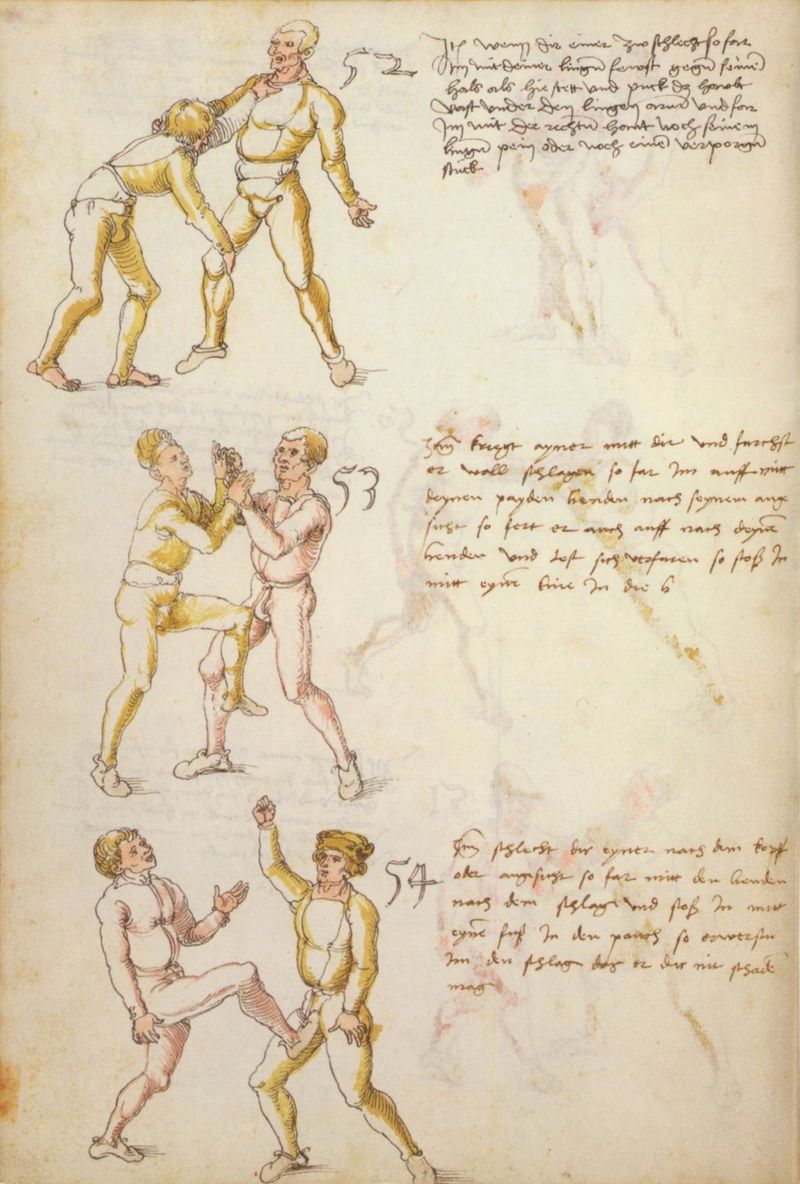 52
Itm wenn dir einer zw schlecht so far
Im mit deiner lingn fewst gegen seinē
hals als hie stett und puck dz hawbt
vast under den lingen arm und far
Im mit der rechtn hant noch seinem
lingn pein oder noch einē verporgn
stuck
53
Itm kriegt ayner mitt dir und furchst
er woll schlagen so far im auff mitt
deynen payden henden nach seynem ange
sicht so fert er auch auff nach deynē
henden und lest sich verfaren so stoß In
mitt eynē knie In die h
54
Itm schlecht dir eyner nach dem kopff
oder angesicht so far mitt den henden
nach dem schlag und stoß In mitt
eynē fuß In den pauch so erwerstu
Im den schlag das er dir nit schadē
mag
51